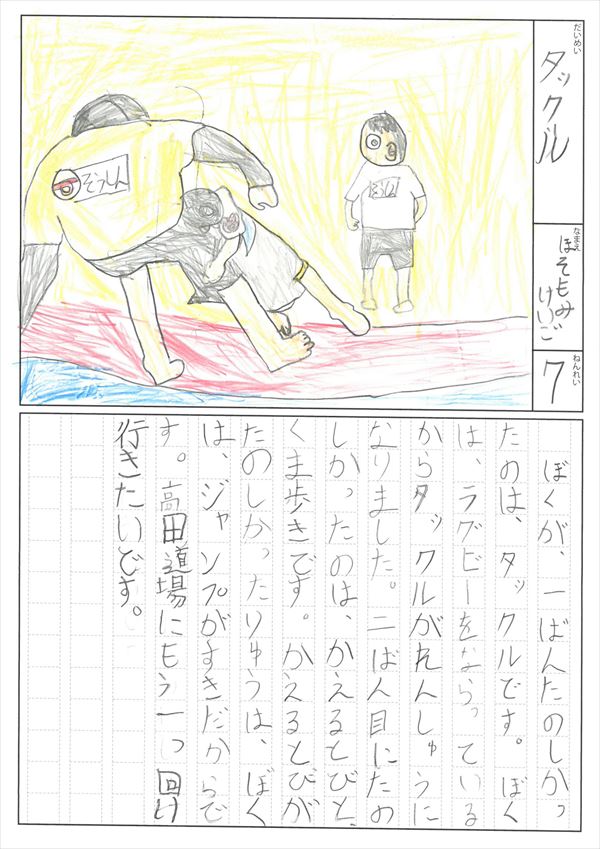 だいめい
タックル
なまえ
ほそもみ
けいご
ねんれい
7
そうしん
ぼくが、一ばんたのしかっ
たのは、タックルです。ぼく
は、ラグビーをならっている
からタックルがれんしゅうに
なりました。二ばん目にたの
しかったのは、かえるとびと、
くま歩きです。かえるとびが
たのしかったりゆうは、ぼく
は、ジャンプがすきだからで
す。高田道場にもう一っ回け
行きたいです。